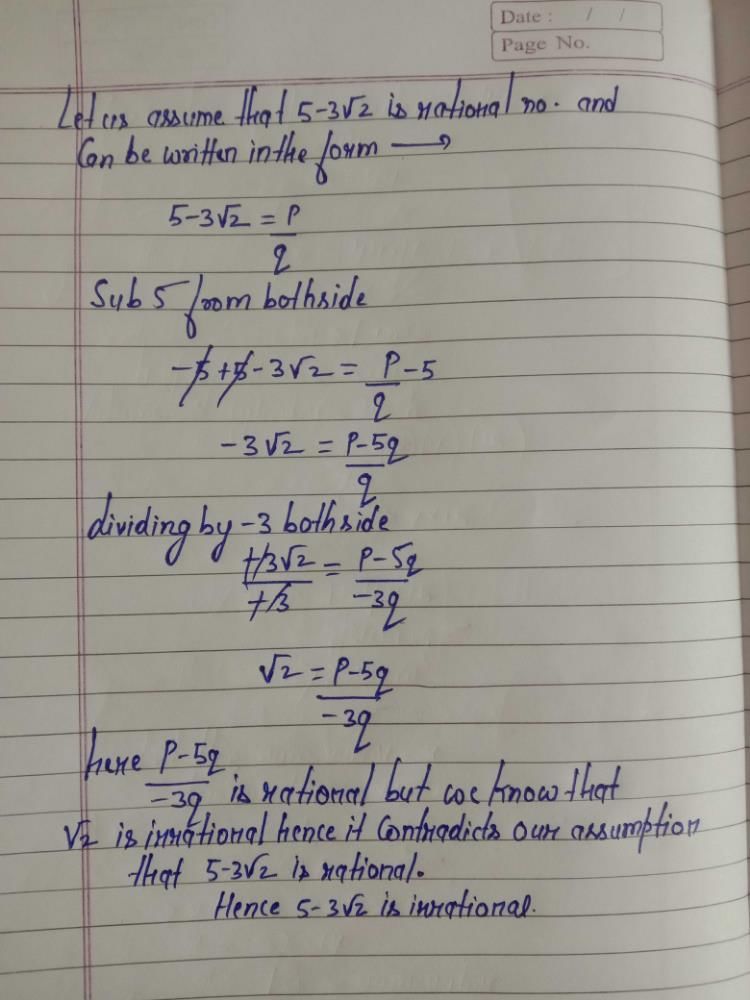 Date : / /
Page No.
Let us assume that 5-3√2 is rational no. and
Can be written in the form →
5-3√2 = P/q
Sub 5 from bothside
-5+5-3√2 = P/q -5
-3√2 = P-5q/q
dividing by -3 bothside
+3√2/+3 = P-5q/-3q
√2 = P-5q/-3q
here P-5q/-3q is rational but we know that
√2 is irrational hence it Contradicts our assumption
that 5-3√2 is rational.
Hence 5-3√2 is irrational.